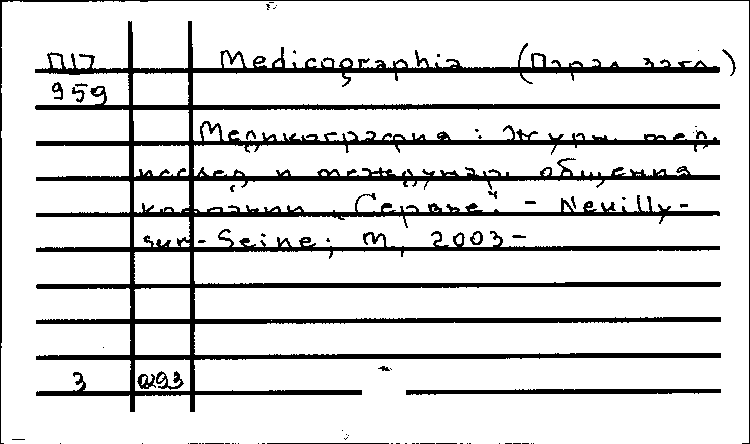 П17 Medicographia (Парал. загл.)
959
Медикография : Журн. мед.
исслед. и междунар. общения
компании „Сервье“. – Neuilly-
sur-Seine; М., 2003–
3 а293